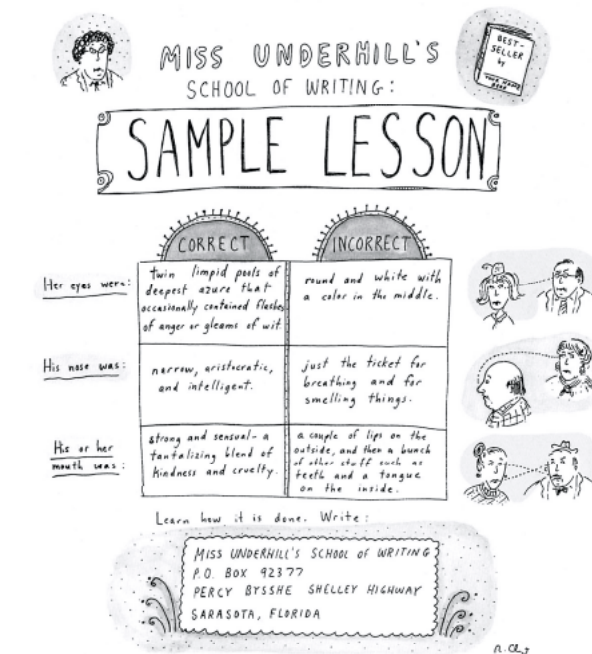 MISS UNDERHILL'S
SCHOOL OF WRITING:
BEST-
SELLER
by
YOUR NAME
HERE
SAMPLE LESSON
CORRECT
INCORRECT
Her eyes were:
twin limpid pools of
deepest azure that
occasionally contained flashes
of anger or gleams of wit.
round and white with
a color in the middle.
His nose was:
narrow, aristocratic,
and intelligent.
just the ticket for
breathing and for
smelling things.
His or her
mouth was:
strong and sensual- a
tantalizing blend of
kindness and cruelty.
a couple of lips on the
outside, and then a bunch
of other stuff such as
teeth and a tongue
on the inside.
Learn how it is done. Write:
MISS UNDERHILL'S SCHOOL OF WRITING
P.O. BOX 92377
PERCY BYSSHE SHELLEY HIGHWAY
SARASOTA, FLORIDA